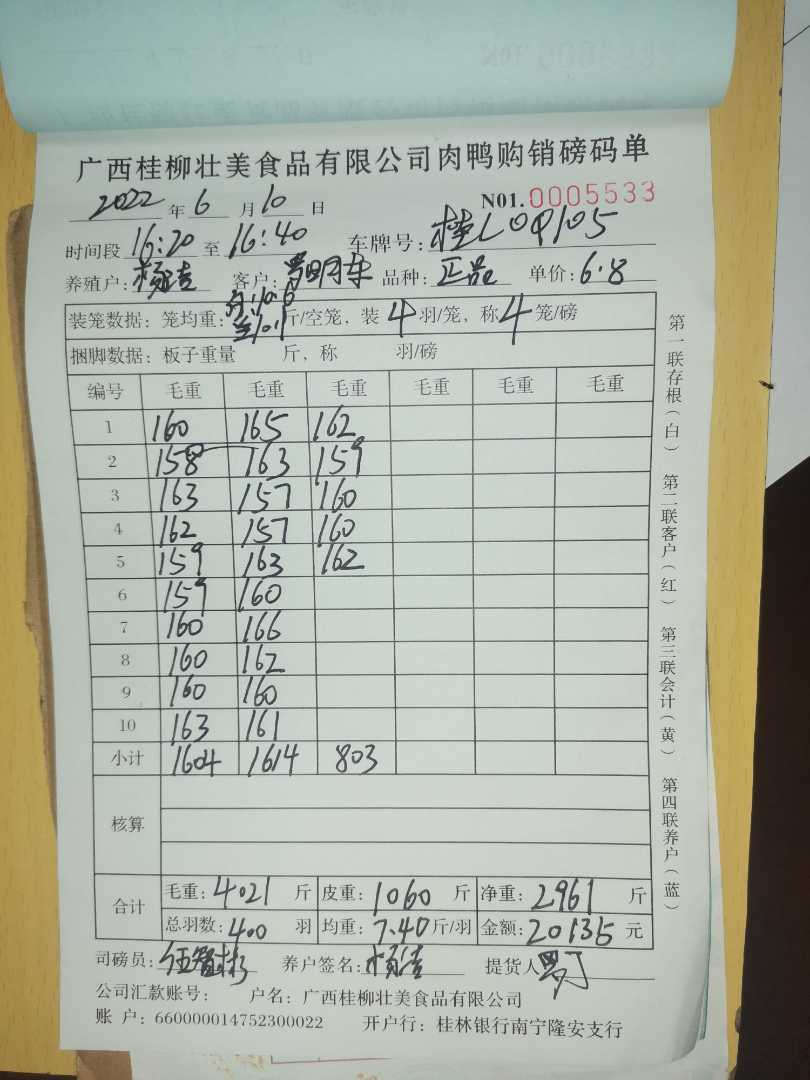 广西桂柳壮美食品有限公司肉鸭购销磅码单
2022 年 6 月 10 日 N01.0005533
时间段 16:20 至 16:40 车牌号: 桂L09105
养殖户: 客户: 品种: 正品 单价: 6.8
装笼数据: 笼均重: 10.6 斤/空笼, 装 4 羽/笼, 称 4 笼/磅
捆脚数据: 板子重量 斤, 称 羽/磅
编号 毛重 毛重 毛重 毛重 毛重 毛重
1 160 165 162
2 158 163 159
3 163 157 160
4 162 157 160
5 159 163 162
6 159 160
7 160 166
8 160 162
9 160 160
10 163 161
小计 1604 1614 803
核算
合计 毛重: 4021 斤 皮重: 1060 斤 净重: 2961 斤
总羽数: 400 羽 均重: 7.40 斤/羽 金额: 20135 元
司磅员: 养户签名: 提货人
公司汇款账号: 户名: 广西桂柳壮美食品有限公司
账 户: 660000014752300022 开户行: 桂林银行南宁隆安支行
第一联存根(白) 第二联客户(红) 第三联会计(黄) 第四联养户(蓝)